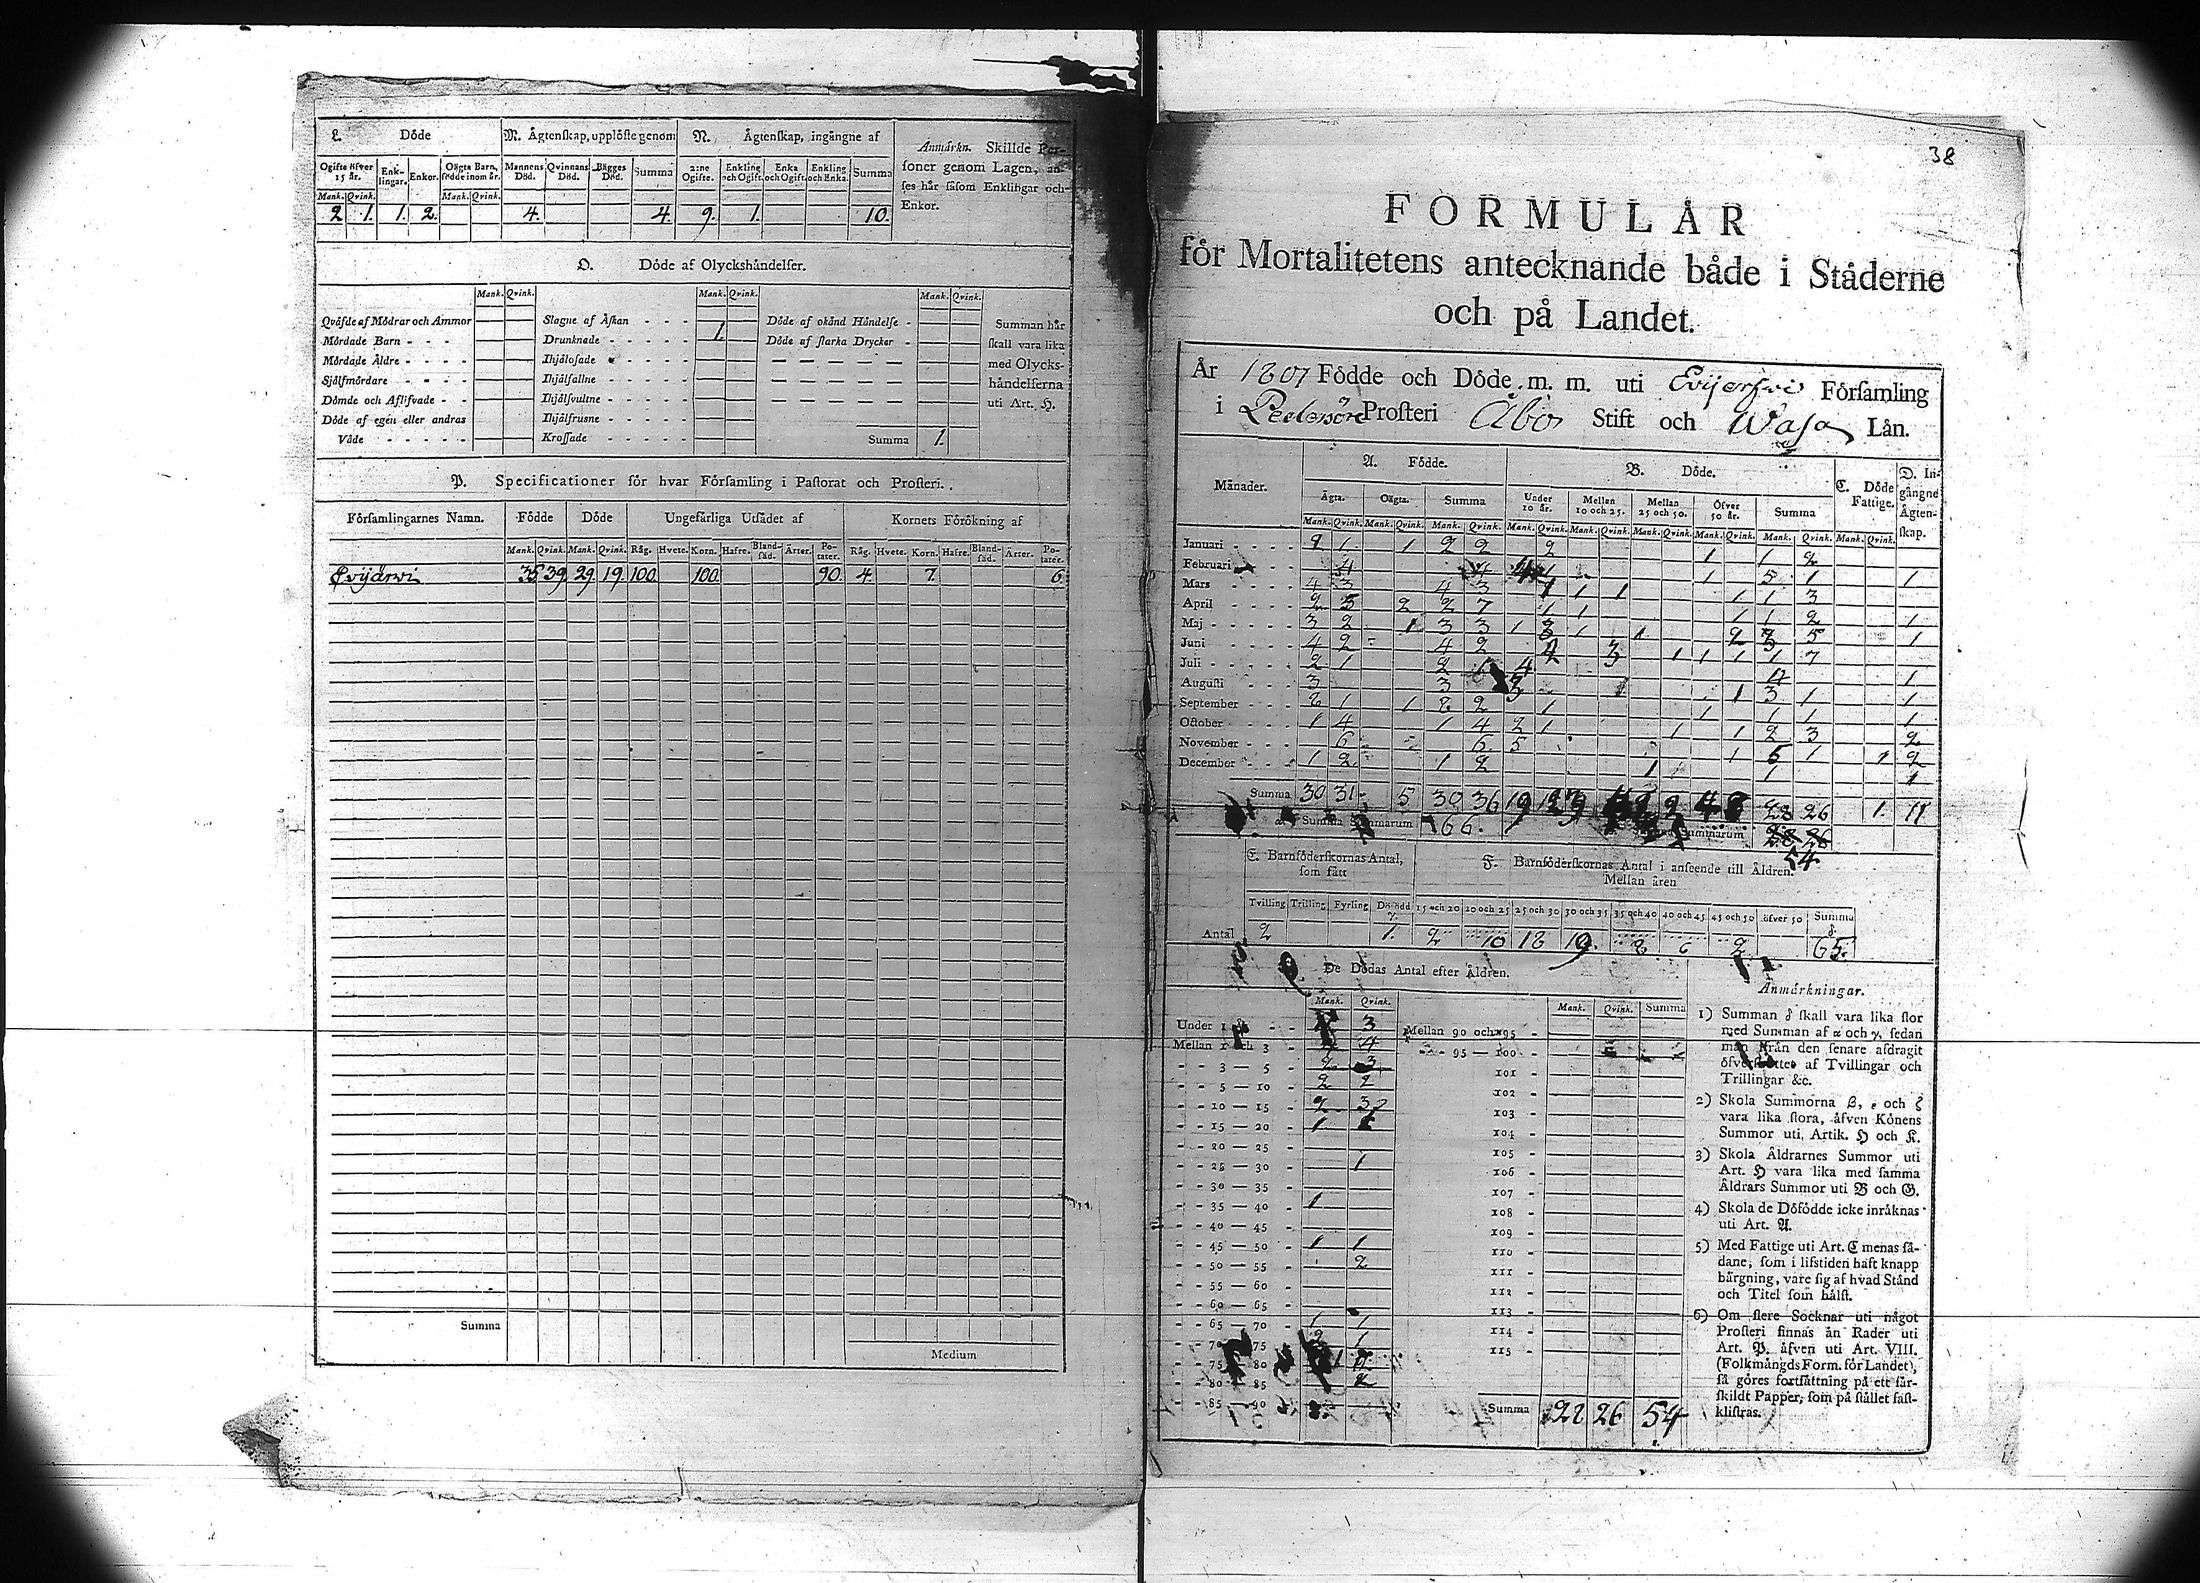 L. Döde
M. Ägtenskap, upplöste genom
N. Ägtenskap, ingångne af
Anmärkn. Skillde Per-
soner genom Lagen, an-
ses här såsom Enklingar och
Enkor.
Ogifte öfver 15 år. Enk-lingar. Enkor. Oägta Barn, födde inom år. Mannens Död. Qvinnans Död. Bägges Död. Summa 2:ne Ogifte. Enkling och Ogift. Enka och Ogift. Enkling och Enka. Summa
Mank. Qvink. Mank. Qvink.
2 1. 1. 2. 4. 4. 9. 1. 10.
O. Döde af Olyckshändelser.
Mank. Qvink. Mank. Qvink. Mank. Qvink.
Qväfde af Mödrar och Ammor Slagne af Åskan Döde af okänd Händelse
Mördade Barn Drunknade 1. Döde af starka Drycker
Mördade Äldre Ihjälosade
Sjölfmördare Ihjälfallne
Dömde och Aflifvade Ihjälsvultne
Döde af egen eller andras Ihjälfrusne
Våde Krossade Summa 1.
Summan här
skall vara lika
med Olycks-
händelserna
uti Art. H.
P. Specificationer för hvar Församling i Pastorat och Prosteri.
Församlingarnes Namn. Födde Döde Ungefärliga Utsädet af Kornets Förökning af
Mank. Qvink. Mank. Qvink. Råg. Hvete. Korn. Hafre. Bland-säd. Ärter. Po-tater. Råg. Hvete. Korn. Hafre. Bland-säd. Ärter. Po-tater.
Evijärwi 35 39 29. 19. 100. 100. 90. 4. 7. 6
Summa
Medium
38
FORMULÄR
för Mortalitetens antecknande både i Städerne
och på Landet.
År 1807 Födde och Döde m. m. uti Evijerfwi Församling
i Pedersöre Prosteri Åbo Stift och Wasa Län.
Månader. A. Födde. B. Döde. C. Döde Fattige. D. In-gångne Ägten-skap.
Ägta. Oägta. Summa Under 10 år. Mellan 10 och 25. Mellan 25 och 50. Öfver 50 år. Summa
Mank. Qvink. Mank. Qvink. Mank. Qvink. Mank. Qvink. Mank. Qvink. Mank. Qvink. Mank. Qvink. Mank. Qvink. Mank. Qvink.
Januari 2 1 1 2 2 2 1 1 2
Februari 4 4 1 1 5 1 1
Mars 4 3 4 3 1 1 1 1 1 3
April 2 5 2 2 7 1 1 1 1 2 1
Maj 3 2 1 3 3 1 3 1 1 2 3 5 1
Juni 4 2 4 2 1 1 1 1 7
Juli 2 1 2 4 4 1
Augusti 3 3 3 1 3 1 1
September 2 1 1 2 2 1 1 1 1 1
October 1 4 1 4 2 1 1 1 2 3 2
November 6 6 5 1 6 1 1 2
December 1 2 1 2 1 1 1
Summa 30 31 5 30 36 19 28 26 1. 11
Summa Summarum 66. Summarum
54
E. Barnföderskornas Antal, som fått
F. Barnföderskornas Antal i anseende till Åldren.
Mellan åren
Tvilling Trilling Fyrling Dödödd 15 och 20 20 och 25 25 och 30 30 och 35 35 och 40 40 och 45 45 och 50 öfver 50 Summa
Antal 2 1. 2 10 18 19. 8 6 2 65.
De Dödas Antal efter Åldren.
Mank. Qvink. Mank. Qvink. Summa
Under 1 år 3 Mellan 90 och 95
Mellan 1 och 3 4 95 — 100
3 — 5 2 3 101
5 — 10 2 2 102
10 — 15 2 3 103
15 — 20 1 104
20 — 25 105
25 — 30 1 106
30 — 35 107
35 — 40 1 108
40 — 45 109
45 — 50 1 1 110
50 — 55 2 111
55 — 60 112
60 — 65 113
65 — 70 1 1 114
70 — 75 2 1 115
75 — 80
80 — 85 2
85 — 90 Summa 28 26 54
Anmärkningar.
1) Summan δ skall vara lika stor
med Summan af α och γ, sedan
man från den senare afdragit
öfverskottet af Tvillingar och
Trillingar &c.
2) Skola Summorna β, ε och ζ
vara lika stora, äfven Könens
Summor uti Artik. H och K.
3) Skola Åldrarnes Summor uti
Art. H vara lika med samma
Åldrars Summor uti B och G.
4) Skola de Dödfödde icke inräknas
uti Art. A.
5) Med Fattige uti Art. C menas så-
dane, som i lifstiden haft knapp
bärgning, vare sig af hvad Stånd
och Titel som hälst.
6) Om flere Socknar uti något
Prosteri finnas än Rader uti
Art. P. äfven uti Art. VIII.
(Folkmängds Form. för Landet),
så göres fortsättning på ett sär-
skildt Papper, som på stället fast-
klistras.